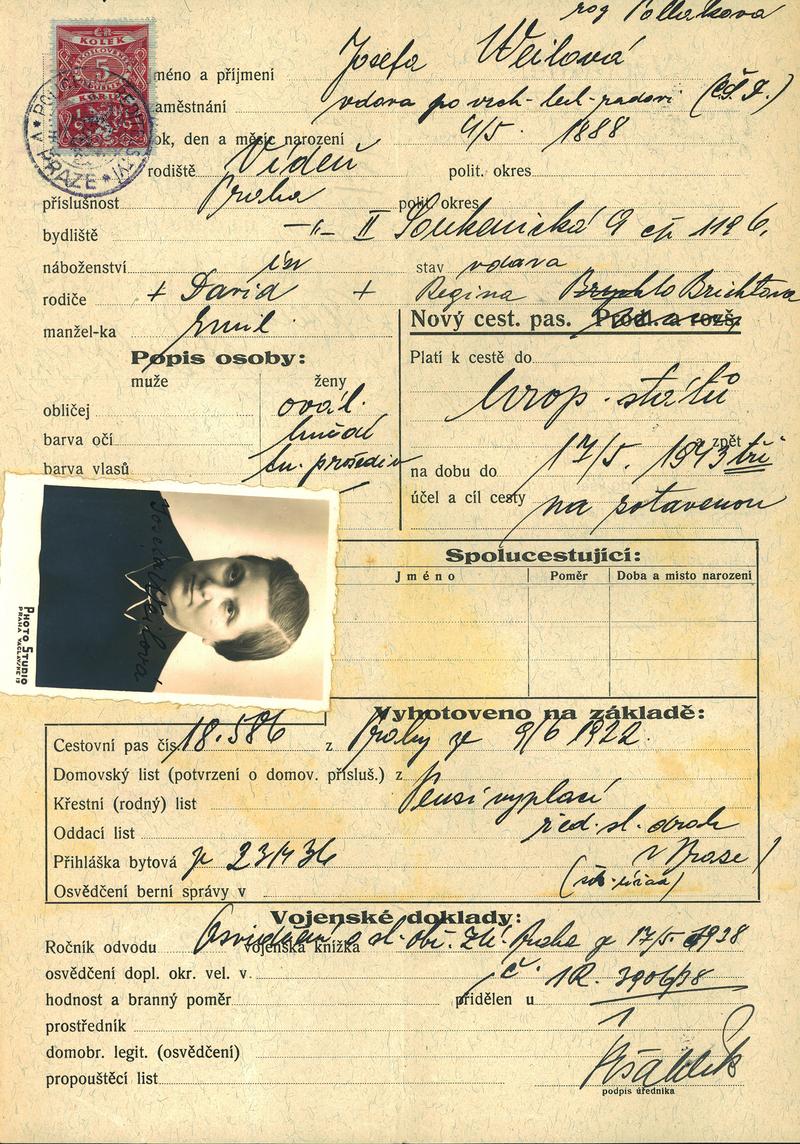 roz Pollakova
ČR
KOLEK
5
méno a příjmení Josefa Weilová
aměstnání vdova po vrch-
ok, den a měsíc narození 4/5. 1888
rodiště Vídeň polit. okres
příslušnost Praha polit. okres
bydliště –"– II Soukenická 9 čp 1196.
náboženství izr stav vdova
rodiče + David + Regina Brichtova
manžel-ka Emil
Nový cest. pas. Prodl. a rozš.
Popis osoby: Platí k cestě do
muže ženy
obličej ovál. evrop. států
barva očí
barva vlasů tm. prošediv
a zpět
na dobu do 17/5. 1943 tří
účel a cíl cesty na zotavenou
Josefa Weilová
PHOTO STUDIO
PRAHA VÁCLAVSKÉ
Spolucestující:
Jméno Poměr Doba a místo narození
Vyhotoveno na základě:
Cestovní pas čís. 18.586 z Prahy ze 9/6 1922.
Domovský list (potvrzení o domov. přísluš.) z
Křestní (rodný) list Pensi vyplací
Oddací list řed. st. drah
Přihláška bytová z 23/4 36 v Praze)
Osvědčení berní správy v
Vojenské doklady:
Ročník odvodu vojenská knížka Osvědčení Praha z 17/5 1938
osvědčení dopl. okr. vel. v č. 1R. 3906/38
hodnost a branný poměr přidělen u
prostředník
domobr. legit. (osvědčení)
propouštěcí list
podpis úředníka